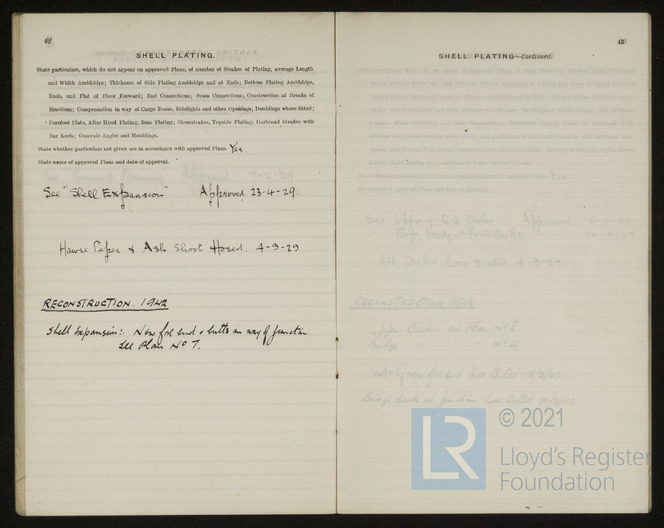 42
SHELL PLATING.
State particulars, which do not appear on approved Plans, of number of Strakes of Plating, average Length
and Width Amidships; Thickness of Side Plating Amidships and at Ends; Bottom Plating Amidships,
Ends, and Flat of Floor Forward; End Connections; Seam Connections; Construction at Breaks of
Erections; Compensation in way of Cargo Doors, Sidelights and other Openings; Doublings where fitted;
Forefoot Plate, After Hood Plating, Boss Plating; Sheerstrakes, Topside Plating; Garboard Strakes with
Bar Keels; Gunwale Angles and Mouldings.
State whether particulars not given are in accordance with approved Plans. Yes
State name of approved Plans and date of approval.
See "Shell Expansion" Approved 23-4-29.
Hawse Pipes & Ash Shoot Hosed. 4-9-29
RECONSTRUCTION. 1942
Shell Expansion:. New fore end & butts in way of junction
See Plan No 7.
43
SHELL PLATING—Continued.
LR
© 2021
Lloyd's Register
Foundation